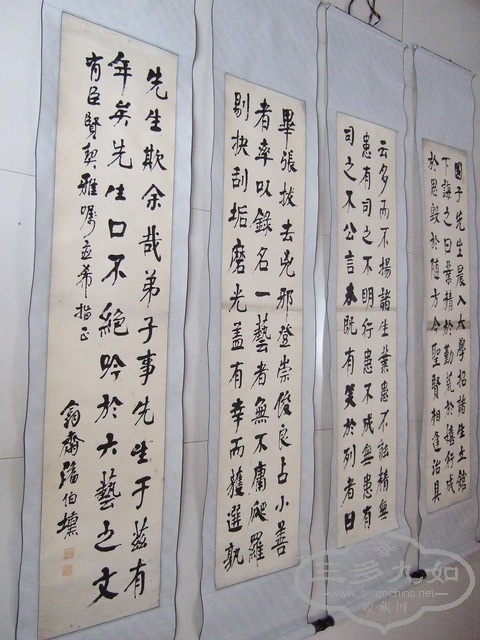 國子先生晨入大學招諸生立館
下誨之曰業精於勤荒於嬉行成
於思毀於隨方今聖賢相逢治具
云多而不揚諸生業患不能精無
患有司之不明行患不成無患有
司之不公言未既有笑於列者曰
畢張拔去兇邪登崇俊良占小善
者率以錄名一藝者無不庸爬羅
剔抉刮垢磨光蓋有幸而獲選孰
先生欺余哉弟子事先生于茲有
年矣先生口不絕吟於六藝之文
有臣賢契雅囑並希指正
齋潘伯
三多九如
www.silver-china.net
收藏网